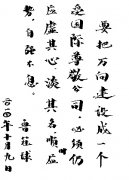 要把万向建设成一个
受国际尊敬公司,必须仍
应虚其心、淡其名,顺应时
势,自强不息。
鲁冠球
二〇一四年十月九日